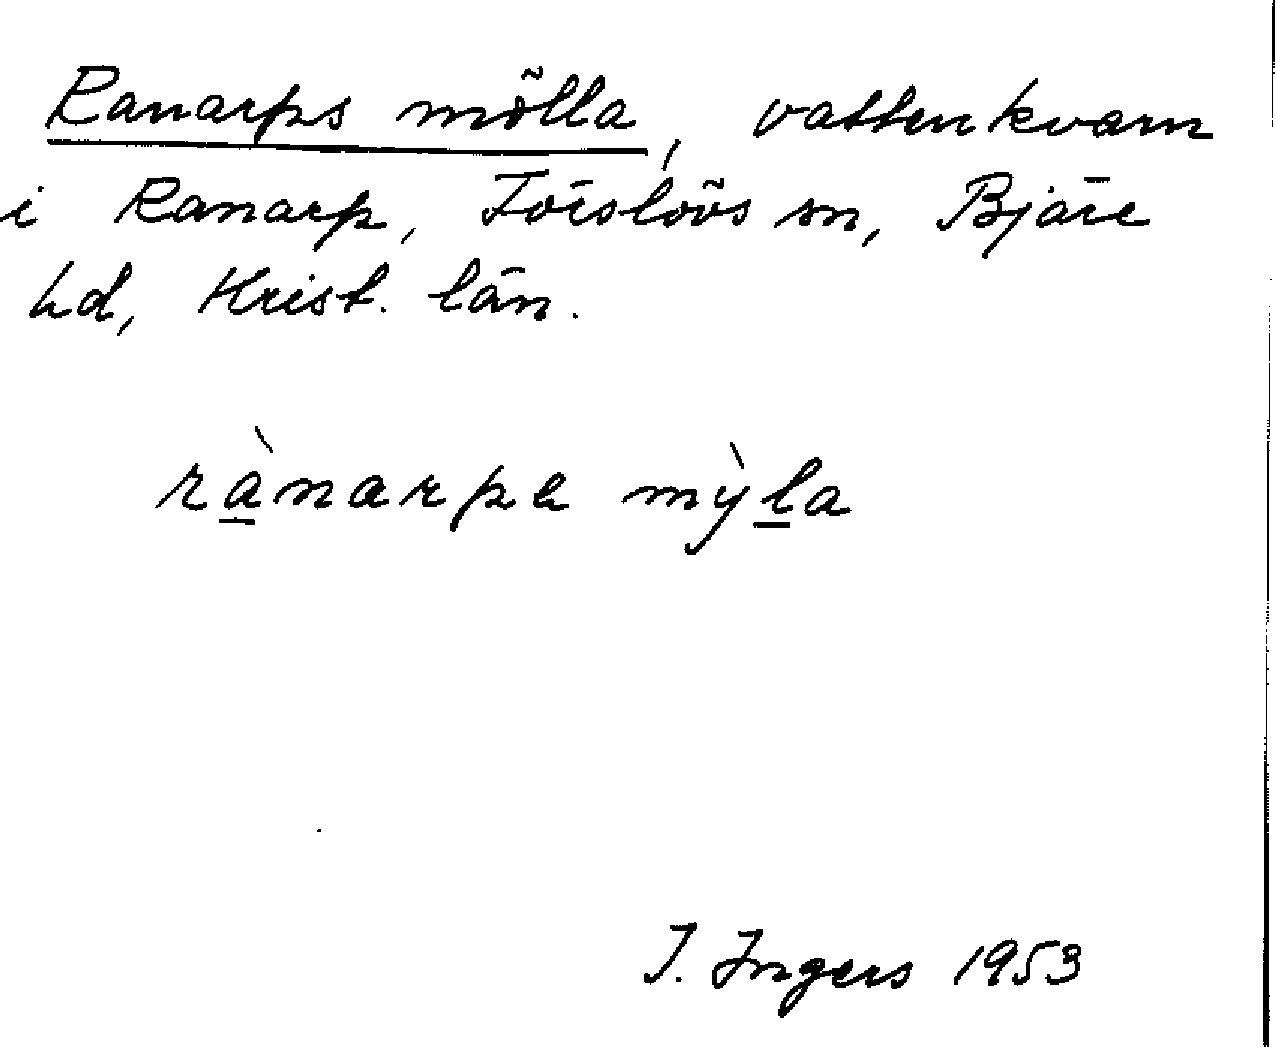 Ranarps mölla, vattenkvarn
i Ranarp, Förslövs sn, Bjäre
hd, Krist. län.
rànarpa mỳla
I. Ingers 1953